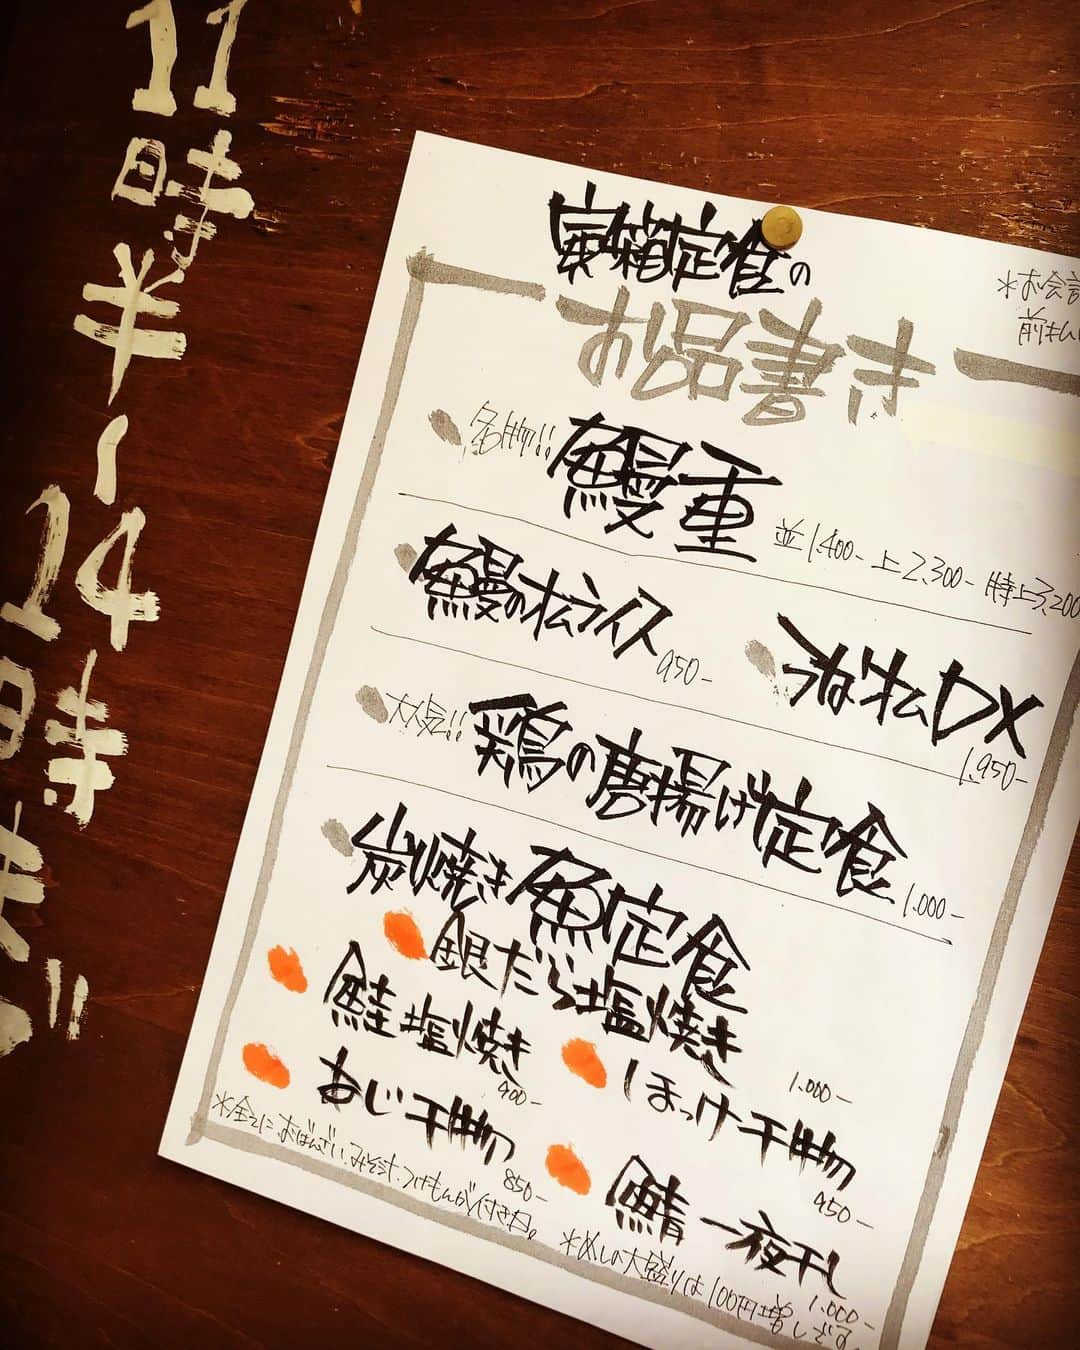 11時半〜14時まで
宝箱定食の
お品書き
*お会計
前払い
名物!!鰻重
並1,400- 上2,300- 特上3,200
鰻のオムライス 950-
うなオムDX 1,950-
大人気!!鶏の唐揚げ定食 1,000-
炭焼き魚定食
銀だら塩焼き 1,000-
鮭塩焼き 900-
ほっけ干物 950-
あじ干物 850-
鯖一夜干し 1,000-
*全てに、おばんざい、みそ汁、つけもんが付き〼。
*めしの大盛りは100円増しです。